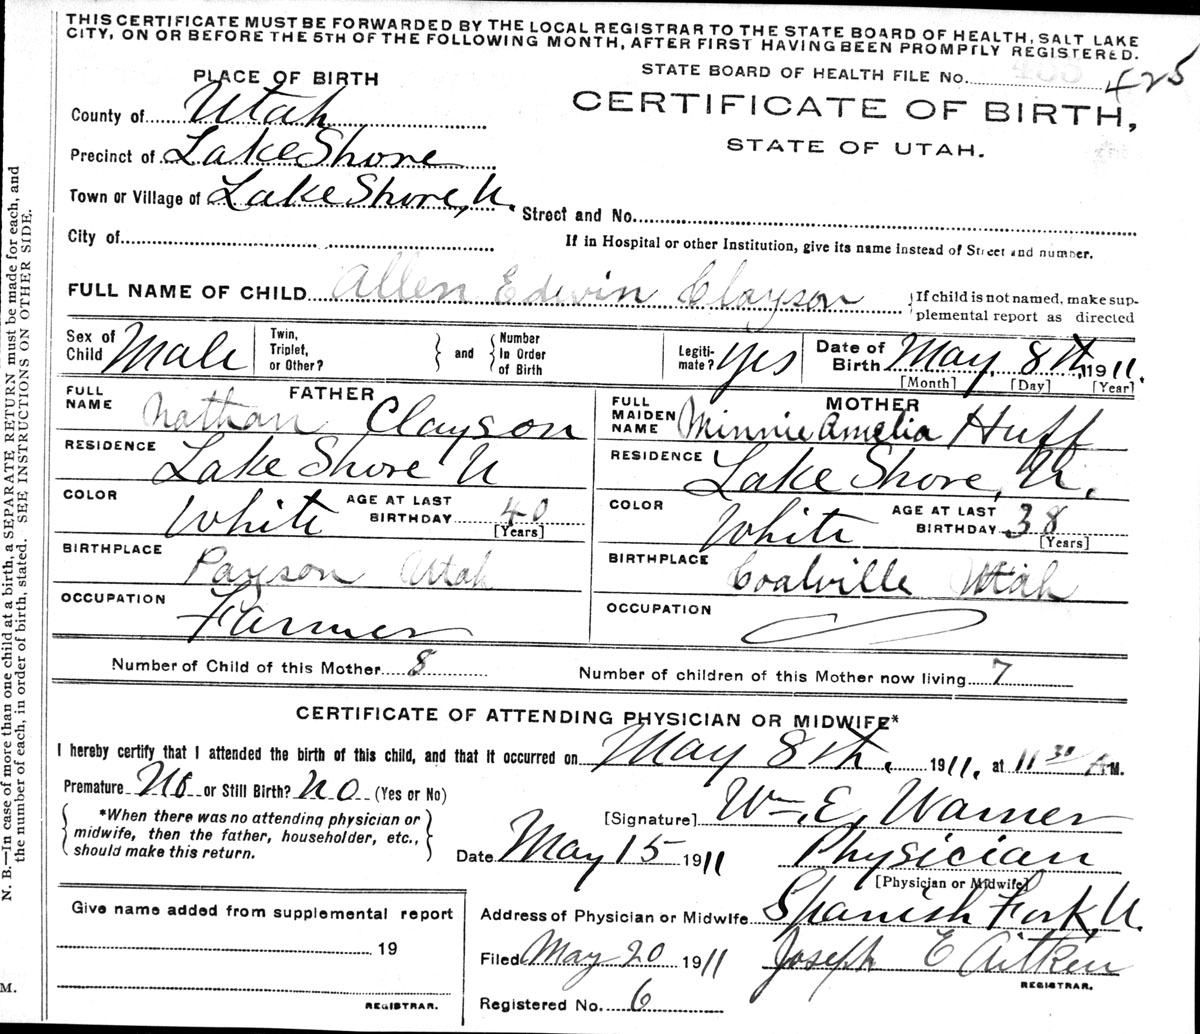 THIS CERTIFICATE MUST BE FORWARDED BY THE LOCAL REGISTRAR TO THE STATE BOARD OF HEALTH, SALT LAKE
CITY, ON OR BEFORE THE 5TH OF THE FOLLOWING MONTH, AFTER FIRST HAVING BEEN PROMPTLY REGISTERED.
STATE BOARD OF HEALTH FILE No. 425
CERTIFICATE OF BIRTH,
STATE OF UTAH.
PLACE OF BIRTH
County of Utah
Precinct of Lake Shore
Town or Village of Lake Shore, U. Street and No.
City of If in Hospital or other Institution, give its name instead of Street and number.
FULL NAME OF CHILD Allen Edwin Clayson {If child is not named, make sup-
plemental report as directed
Sex of Child Male Twin, Triplet, or Other? } and { Number In Order of Birth Legiti-mate? Yes Date of Birth May, 8th, 1911.
[Month] [Day] [Year]
FATHER
FULL NAME Nathan Clayson
RESIDENCE Lake Shore U
COLOR White AGE AT LAST BIRTHDAY 40
[Years]
BIRTHPLACE Payson Utah
OCCUPATION Farmer
MOTHER
FULL MAIDEN NAME Minnie Amelia Huff
RESIDENCE Lake Shore, U.
COLOR White AGE AT LAST BIRTHDAY 38
[Years]
BIRTHPLACE Coalville Utah
OCCUPATION
Number of Child of this Mother 8 Number of children of this Mother now living 7
CERTIFICATE OF ATTENDING PHYSICIAN OR MIDWIFE*
I hereby certify that I attended the birth of this child, and that it occurred on May 8th, 1911, at 11 30 A M.
Premature No or Still Birth? No (Yes or No)
{ *When there was no attending physician or
midwife, then the father, householder, etc.,
should make this return. }
[Signature] Wm. E. Warner
Date May 15 1911 Physician
[Physician or Midwife]
Address of Physician or Midwife Spanish Fork, U.
Filed May 20 1911 Joseph E Aitken
REGISTRAR.
Registered No. 6
Give name added from supplemental report
19
REGISTRAR.
N. B.—In case of more than one child at a birth, a SEPARATE RETURN must be made for each, and
the number of each, in order of birth, stated. SEE INSTRUCTIONS ON OTHER SIDE.
M.